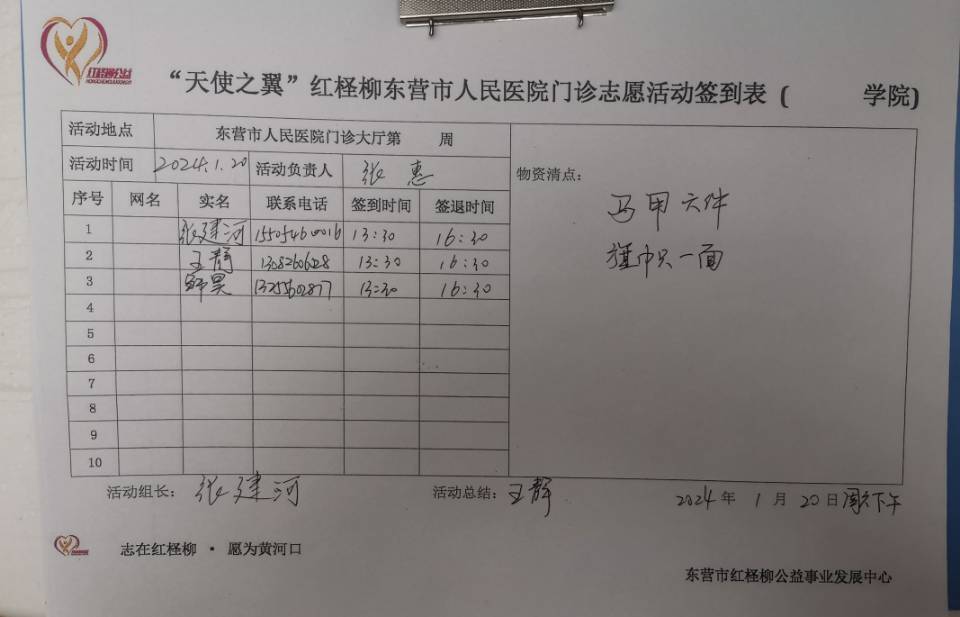 红柽柳公益
“天使之翼”红柽柳东营市人民医院门诊志愿活动签到表( 学院)
活动地点 东营市人民医院门诊大厅第 周
活动时间 2024.1.20 活动负责人 张惠
物资清点:
马甲六件
旗帜一面
序号 网名 实名 联系电话 签到时间 签退时间
1 张建河 15054600016 13:30 16:30
2 王静 13:30 16:30
3 13255602877 13:30 16:30
4
5
6
7
8
9
10
活动组长: 张建河 活动总结: 王静 2024年1月20日周六下午
志在红柽柳 · 愿为黄河口
东营市红柽柳公益事业发展中心